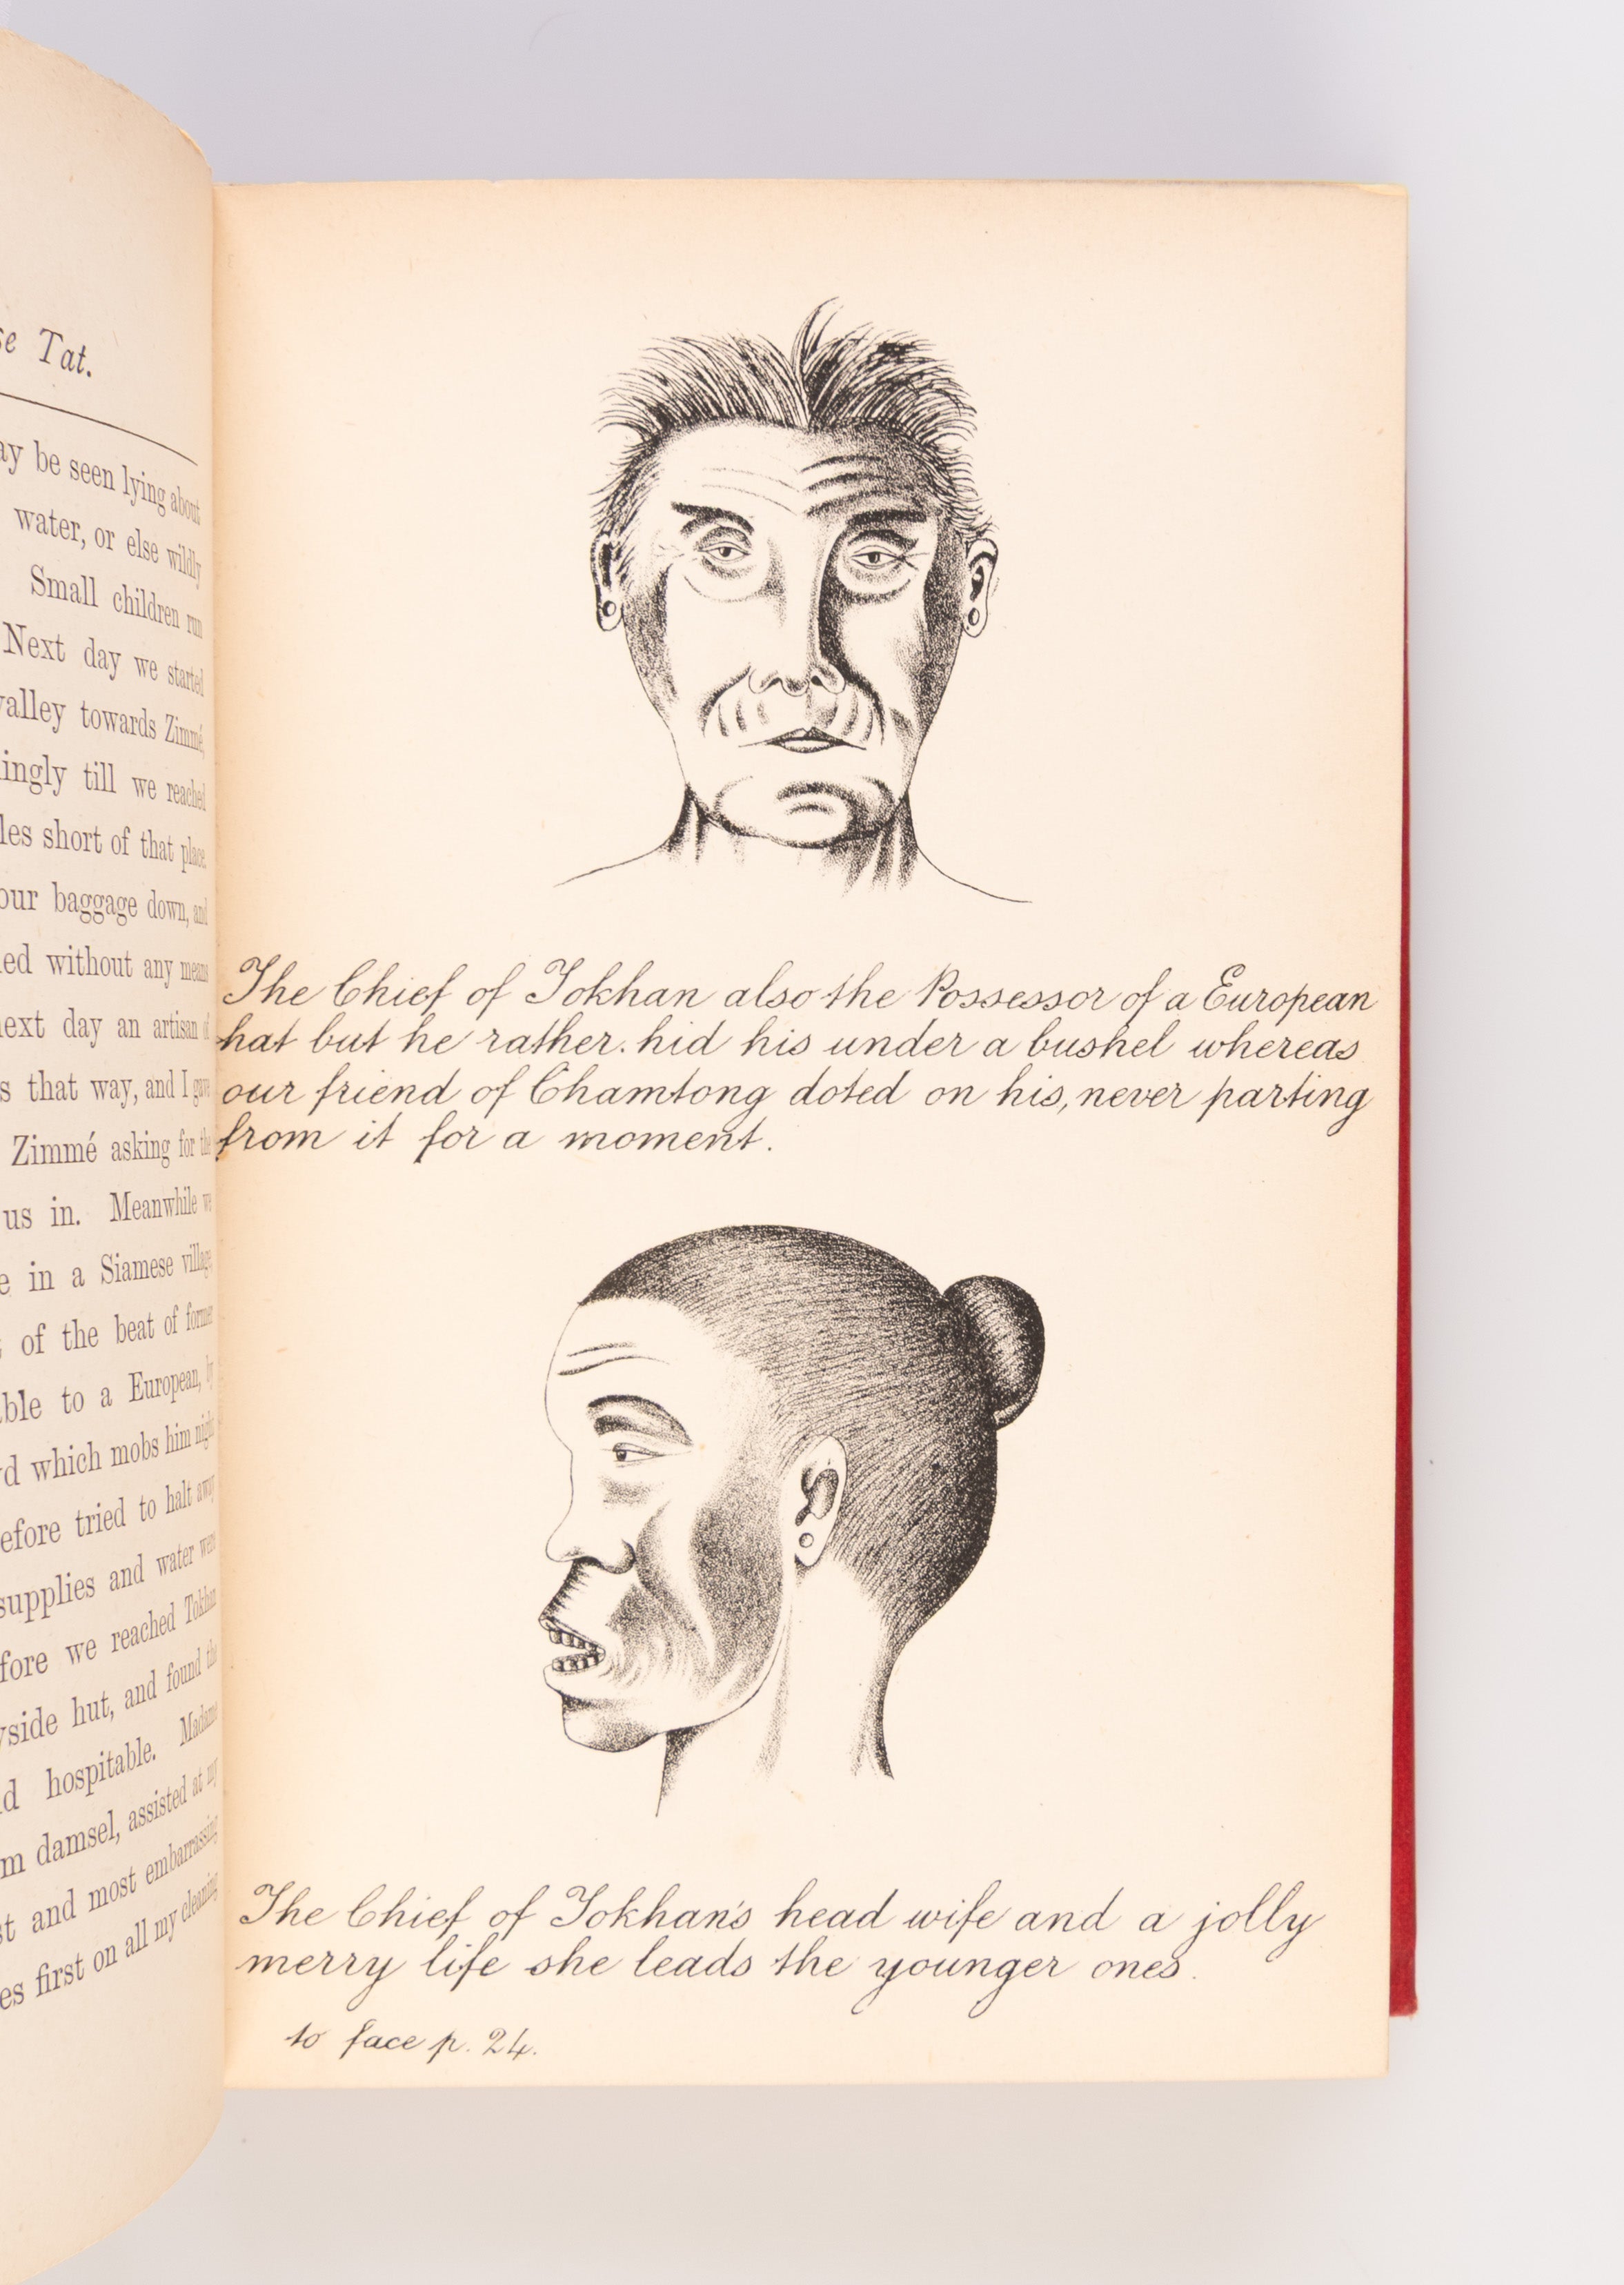 se Tat.
ay be seen lying about
water, or else wildly
Small children run
Next day we started
valley towards Zimmé,
ingly till we reached
les short of that place
our baggage down, and
ed without any means
next day an artisan of
s that way, and I gave
Zimmé asking for the
us in. Meanwhile we
e in a Siamese village,
of the beat of former
able to a European, by
d which mobs him night
efore tried to halt away
supplies and water were
fore we reached Tokhan
yside hut, and found the
d hospitable. Madame
m damsel, assisted at my
st and most embarrassing
es first on all my cleaning
The Chief of Tokhan also the Possessor of a European
hat but he rather. hid his under a bushel whereas
our friend of Chamtong doted on his, never parting
from it for a moment.
The Chief of Tokhan's head wife and a jolly
merry life she leads the younger ones.
to face p. 24.